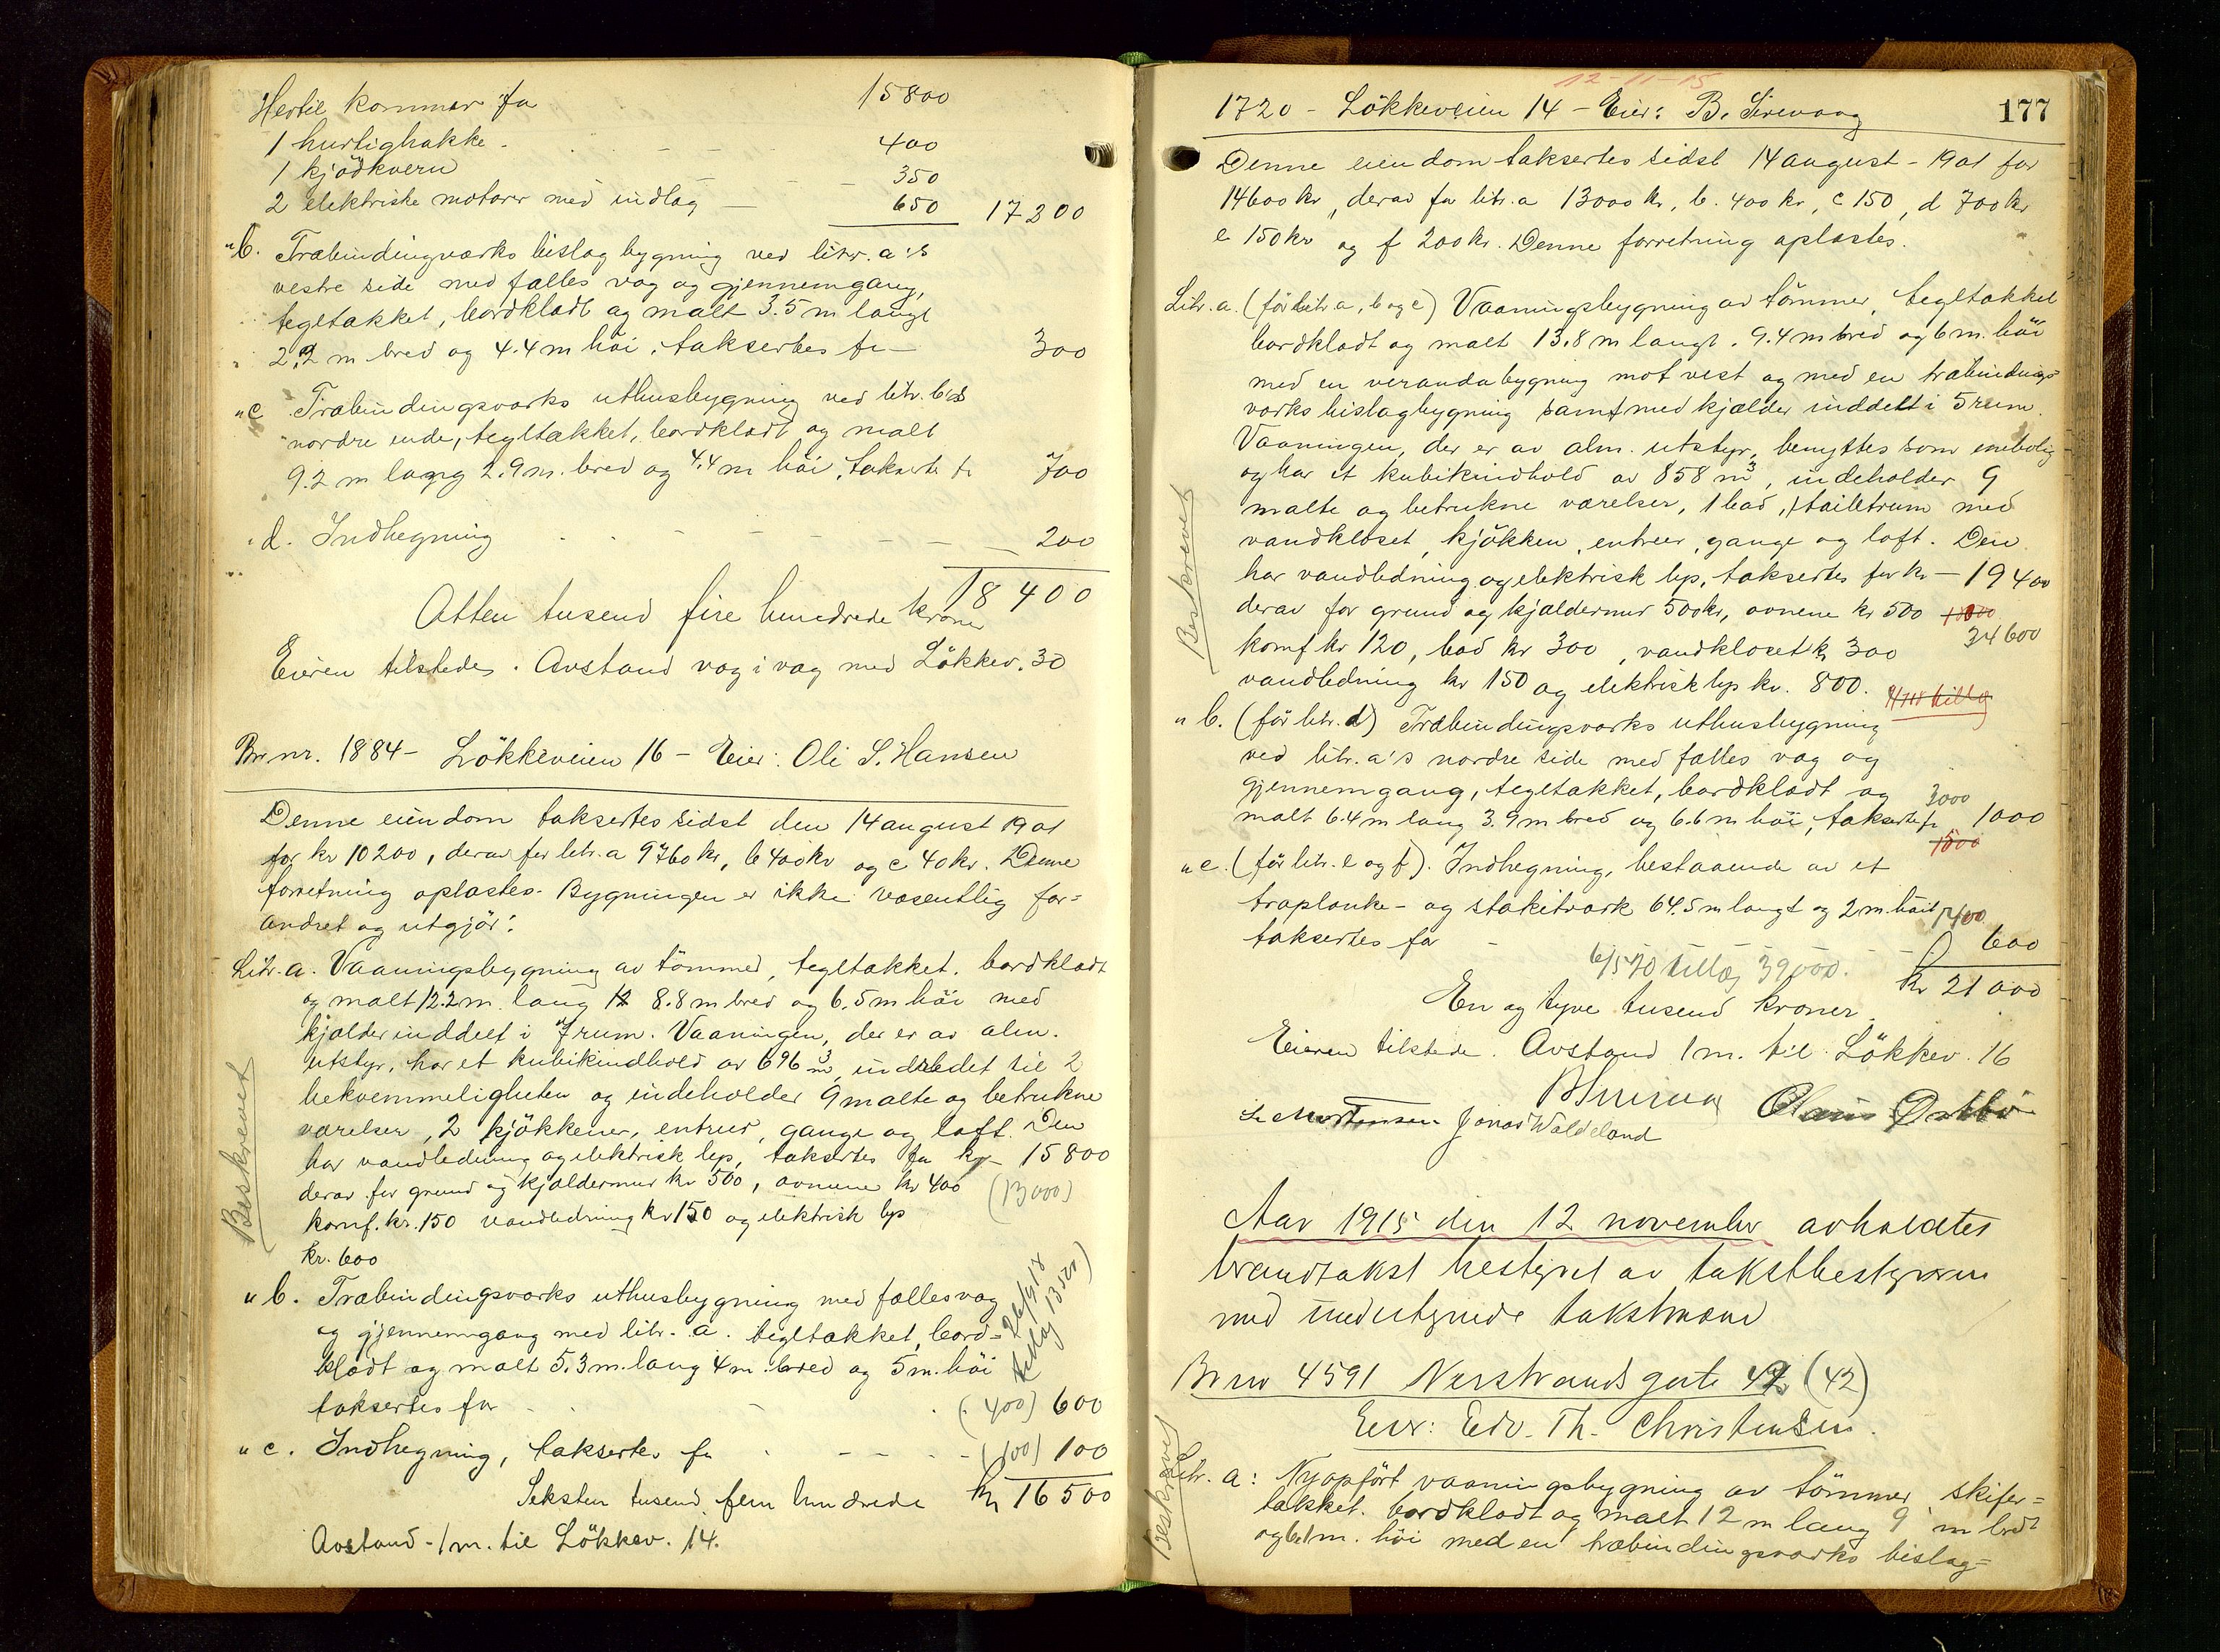 Hertil kommer for 15800
1 hurtighakke - 400
1 kjödkvern - 350
2 elektriske motorer med indlæg — 650 17200
"b. Træbindingværks bislag bygning ved litr. a's
vestre side med fælles væg og gjennemgang,
tegltækket, bordklædt og malt 3.5 m langt
2,2 m bred og 4.4 m höi, taksertes for — 300
"c Træbindingsværks uthusbygning ved litr. b's
nordre ende, tegltækket, bordklædt og malt
9.2 m lang 2.9 m. bred og 4.4 m höi, taksertes fr 700
"d. Indhegning - - - - 200
18400
Atten tusend fire hundrede kroner
Eieren tilstede. Avstand væg i væg med Lökkev. 30
Br.nr. 1884 - Lökkeveien 16 - Eier: Oli S. Hansen
Denne eiendom taksertes sidst den 14 august 1901
for kr 10200, derav for litr. a 9760 kr, b 400 kr og c 40 kr. Denne
forretning oplæstes. Bygningen er ikke væsentlig for=
andret og utgjör:
Litr. a. Vaaningsbygning av tömmer, tegltækket. bordklædt
og malt 12.2 m. lang 8.8 m bred og 6.5 m höi med
kjælder inddelt i 7 rum. Vaaningen, der er av alm.
utstyr, har et kubikindhold av 696 m3, indredet til 2
bekvemmeligheter og indeholder 9 malte og betrukne
værelser, 2 kjökkener, entreer, gange og loft. Den
har vandledning og elektrisk lys, taksertes for kr - 15800
derav for grund og kjældermur kr 500, ovnene kr 400 (13000)
komf. kr. 150 vandledning kr 150 og elektrisk lys
kr. 600
Beskrevet
"b. Træbindingsværks uthusbygning med fælles væg
og gjennemgang med litr. a. tegltækket, bord=
klædt og malt 5.3 m. lang 4 m. bred og 5 m. höi
taksertes for - - (400) 600
26/9 18
tillæg 13500)
"c. Indhegning, taksertes for - - - (100) 100
Seksten tusend fem hundrede kr 16500
Avstand - 1 m. til Lökkev. 14.
12-11-15
1720 - Lökkeveien 14 - Eier: B. Sirevaag 177
Denne eiendom taksertes sidst 14 august - 1901 for
14600 kr, derav for litr. a 13000 kr, b. 400 kr, c 150, d 700 kr
e 150 kr og f 200 kr. Denne forretning oplæstes.
Litr. a. (för litr. a, b og c) Vaaningsbygning av tömmer, tegltækket
bordklædt og malt 13.8 m langt. 9.4 m bred og 6 m. höi
med en verandabygning mot vest og med en træbindings=
værks bislagbygning samt med kjælder inddelt i 5 rum.
Vaaningen, der er av alm. utstyr, benyttes som enebolig
og har et kubikindhold av 858 m3, indeholder 9
malte og betrukne værelser, 1 bad, 1 toiletrum med
vandkloset, kjökken, entreer, gange og loft. Den
har vandledning og elektrisk lys, taksertes for kr — 19400
derav for grund og kjældermur 500 kr, ovnene kr 500
34600
komf kr 120, bad kr 300, vandkloset kr 300
vandledning kr 150 og elektrisk lys kr. 800.
Beskrevet
"b. (för litr. d) Træbindingsværks uthusbygning
ved litr. a's nordre side med fælles væg og
gjennemgang, tegltækket, bordklædt og
3000
malt 6.4 m lang 3.9 m bred og 6.6 m höi, taksertes fr 1000
1500
"c. (för litr. e og f). Indhegning, bestaaende av et
træplanke- og stakitværk 64.5 m langt og 2 m. höit 1400
taksertes for - - - 600
6/5 20 tillæg 39000.
kr 21000
En og tyve tusend kroner
Eieren tilstede. Avstand 1 m. til Lökkev. 16
B Sirevaag Claus Östbö
L. Mortensen Jonas Waldeland
Aar 1915 den 12 november avholdtes
brandtakst bestyret av takstbestyreren
med undertegnede takstmænd
Br no 4591 Nerstrands gate 47 (42)
Eier: Edv. Th. Christensen.
Beskrevet
Litr. a: Nyopfört vaaningsbygning av tömmer, skifer=
tækket. bordklædt og malt 12 m lang 9 m bred
og 6.1 m. höi med en træbindingsværks bislag=